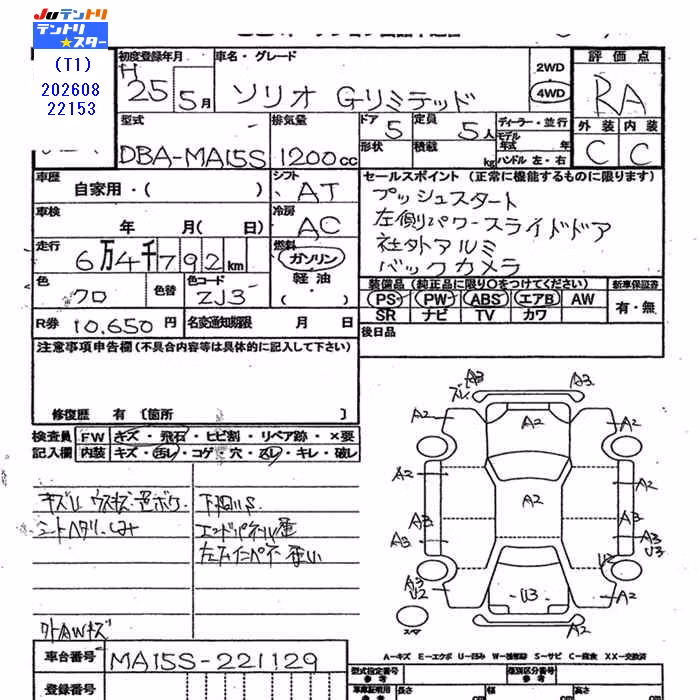 JUテントリ
テントリ★スター
(T1)
202608
22153
初度登録年月 車名・グレード 2WD 評価点
H25年5月 ソリオ Gリミテッド 4WD RA
型式 排気量 ドア 定員 ディーラー・並行 外装 内装
DBA-MA15S 1200cc 5 5人 モデル年式 年 C C
形状 積載 kg ハンドル 左・右
車歴 シフト セールスポイント (正常に機能するものに限ります)
自家用・( ) AT プッシュスタート
車検 冷房 左側パワースライドドア
年 月( 日) AC 社外アルミ
走行 燃料 バックカメラ
6万4千792km ガソリン
軽油
・( )
色 色替 色コード 装備品 (純正品に限り○をつけてください) 新車保証書
クロ ZJ3 PS PW ABS エアB AW 有・無
SR ナビ TV カワ
R券 10,650円 名変通知期限 月 日 後日品
注意事項申告欄 (不具合内容等は具体的に記入して下さい)
修復歴 有 [箇所 ]
検査員 FW キズ・飛石・ヒビ割・リペア跡・×要
記入欄 内装 キズ・汚レ・コゲ・穴・スレ・キレ・破レ
下廻りS
エンドパネル歪
A3 A3
A2 A2 A2
A2 A2 A2
A3 A3
A3 A3 U3
A3 U2 U2
U3
A2 A2
スペア
外AWキズ
A-キズ E-エクボ U-凹み S-サビ C-腐食 XX-交換済
車台番号 MA15S-221129
登録番号
型式指定番号 参考 類別区分番号 参考
車庫証明用 参考 長さ cm 幅 cm 高さ cm